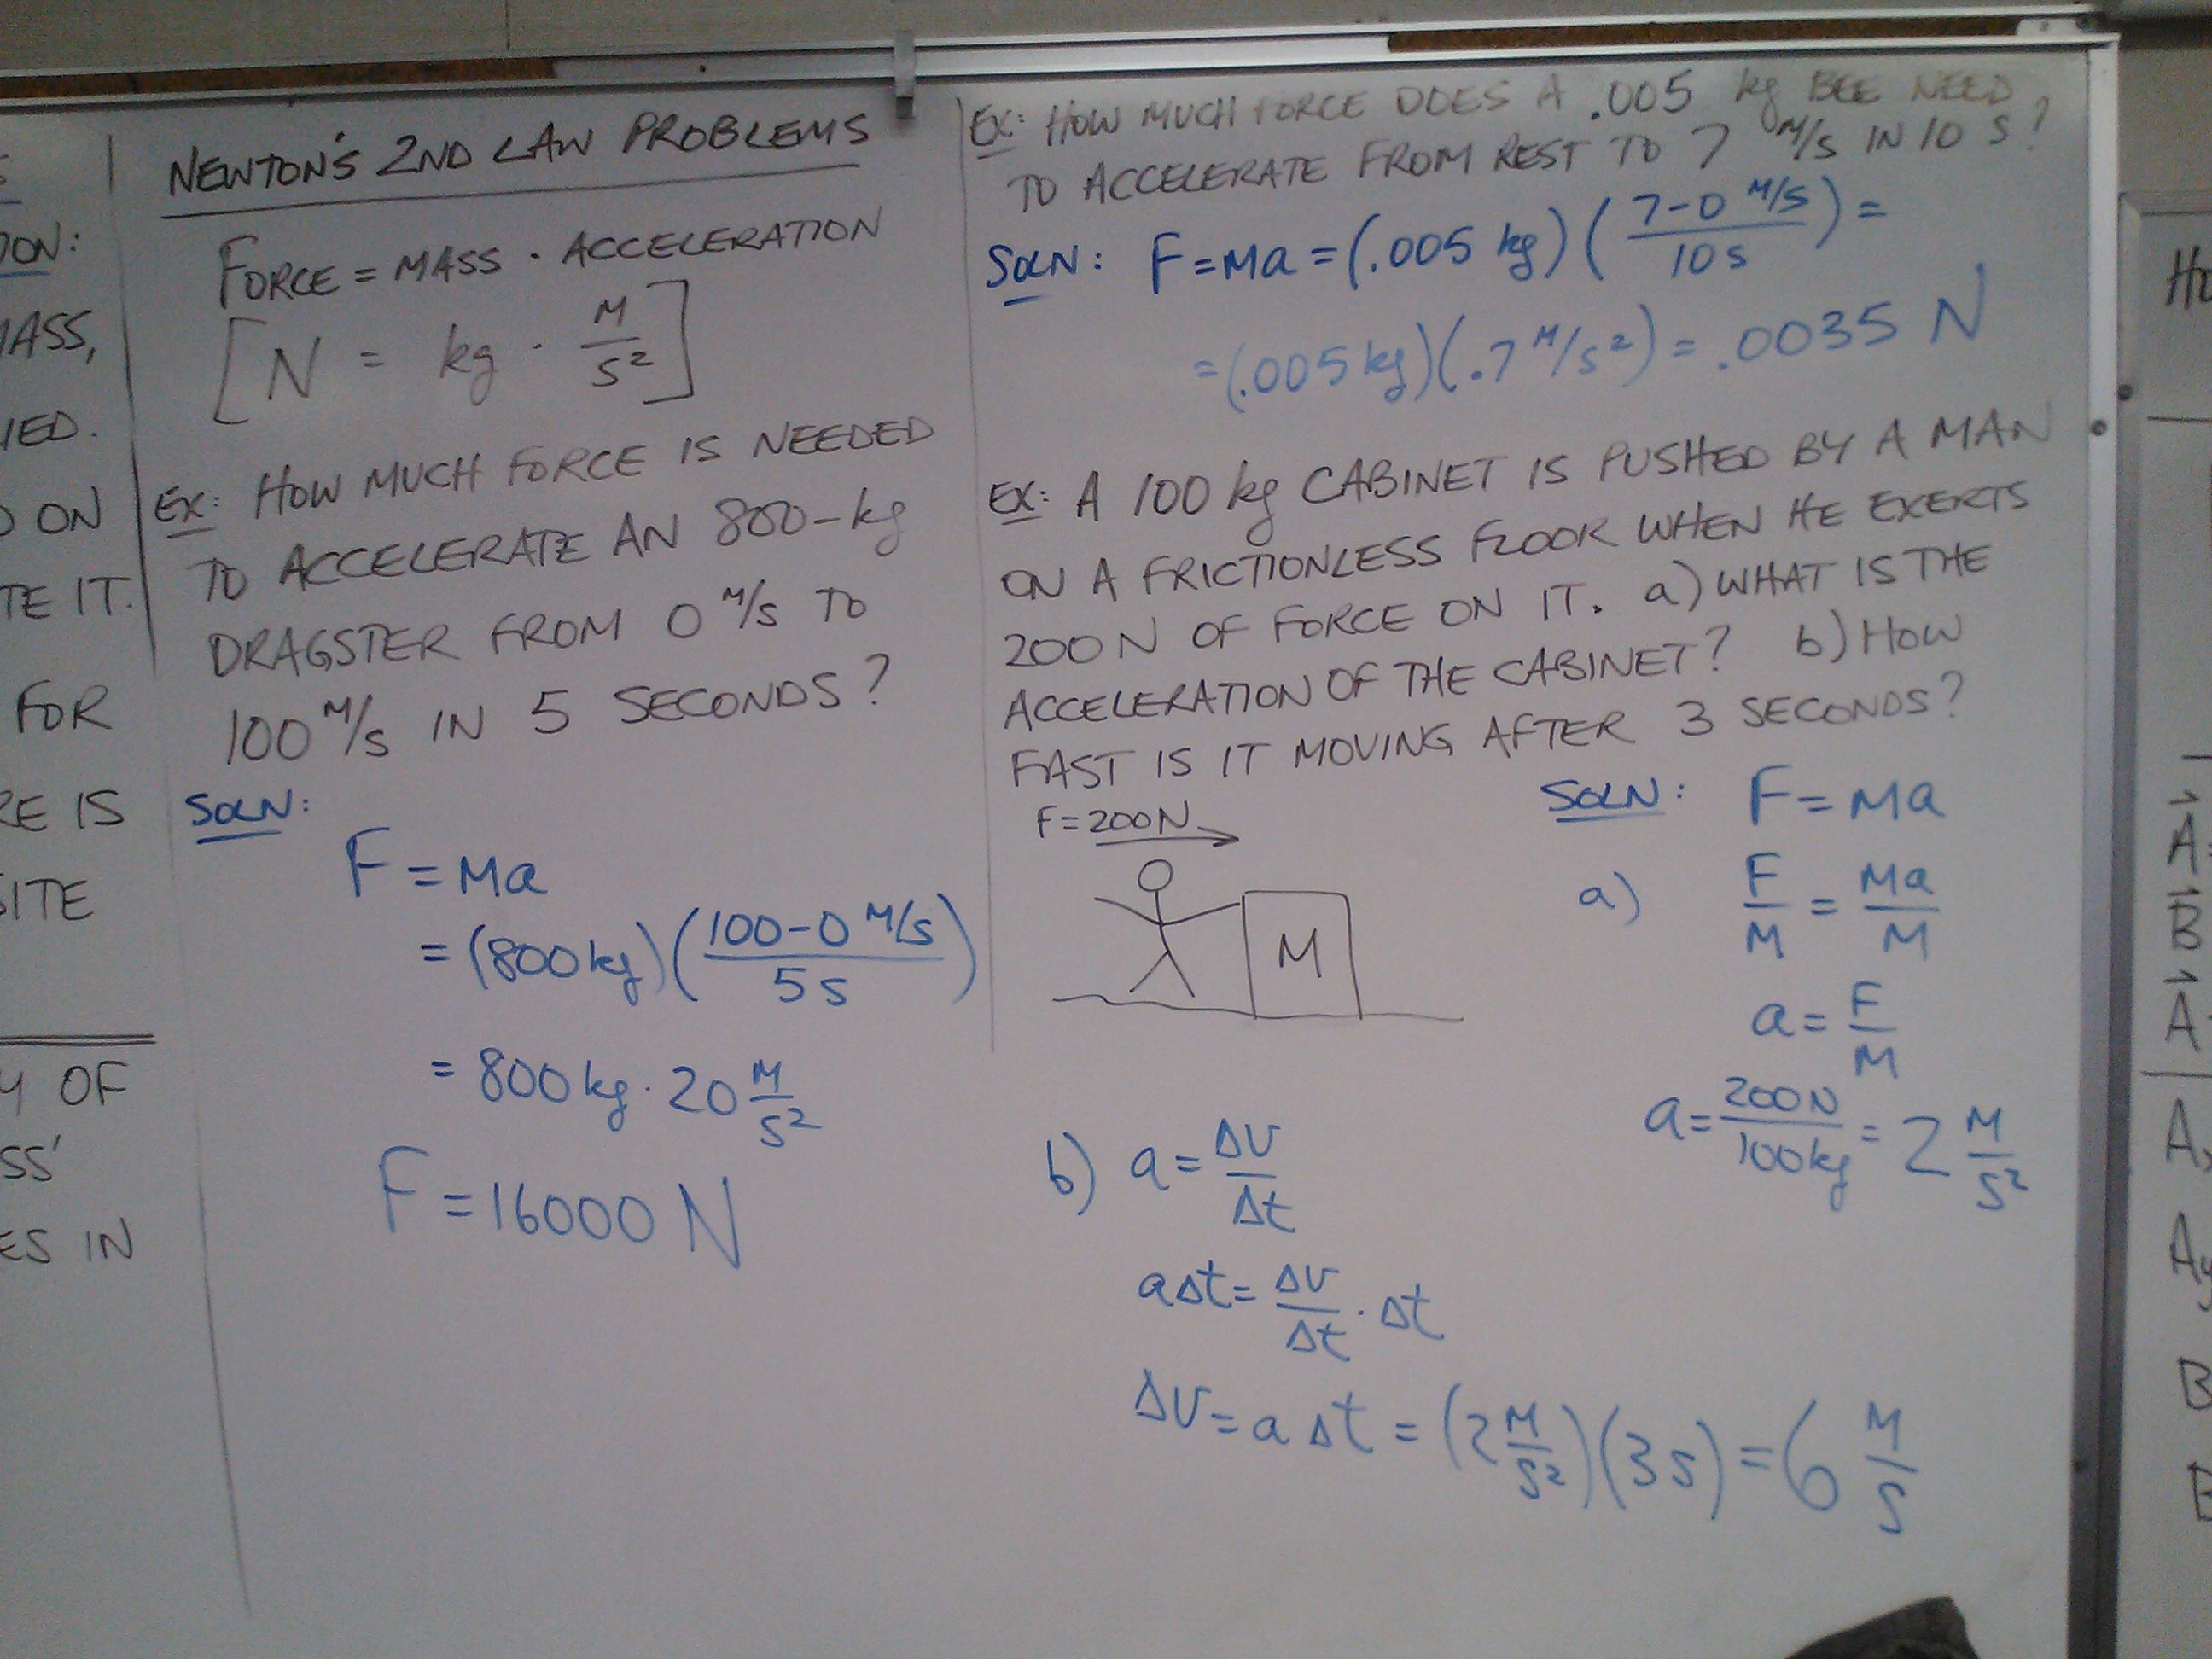 S
ION:
MASS,
IED.
ON
TE IT.
FOR
RE IS
SITE
OF
SS'
ES IN
NEWTON'S 2ND LAW PROBLEMS
FORCE = MASS · ACCELERATION
[N = kg · M/S²]
EX: HOW MUCH FORCE IS NEEDED
TO ACCELERATE AN 800-kg
DRAGSTER FROM 0 M/S TO
100 M/S IN 5 SECONDS?
SOLN:
F = Ma
= (800 kg)((100-0 M/S)/5 s)
= 800 kg · 20 M/S²
F = 16000 N
EX: HOW MUCH FORCE DOES A .005 kg BEE NEED
TO ACCELERATE FROM REST TO 7 M/S IN 10 S?
SOLN: F = Ma = (.005 kg)((7-0 M/S)/10 s) =
= (.005 kg)(.7 M/S²) = .0035 N
EX: A 100 kg CABINET IS PUSHED BY A MAN
ON A FRICTIONLESS FLOOR WHEN HE EXERTS
200 N OF FORCE ON IT. a) WHAT IS THE
ACCELERATION OF THE CABINET? b) HOW
FAST IS IT MOVING AFTER 3 SECONDS?
F = 200 N
M
SOLN: F = Ma
a) F/M = Ma/M
a = F/M
a = 200 N/100 kg = 2 M/S²
b) a = ΔV/Δt
aΔt = ΔV/Δt · Δt
ΔV = a Δt = (2 M/S²)(3 s) = 6 M/S
A
B
A
A
Ay
B